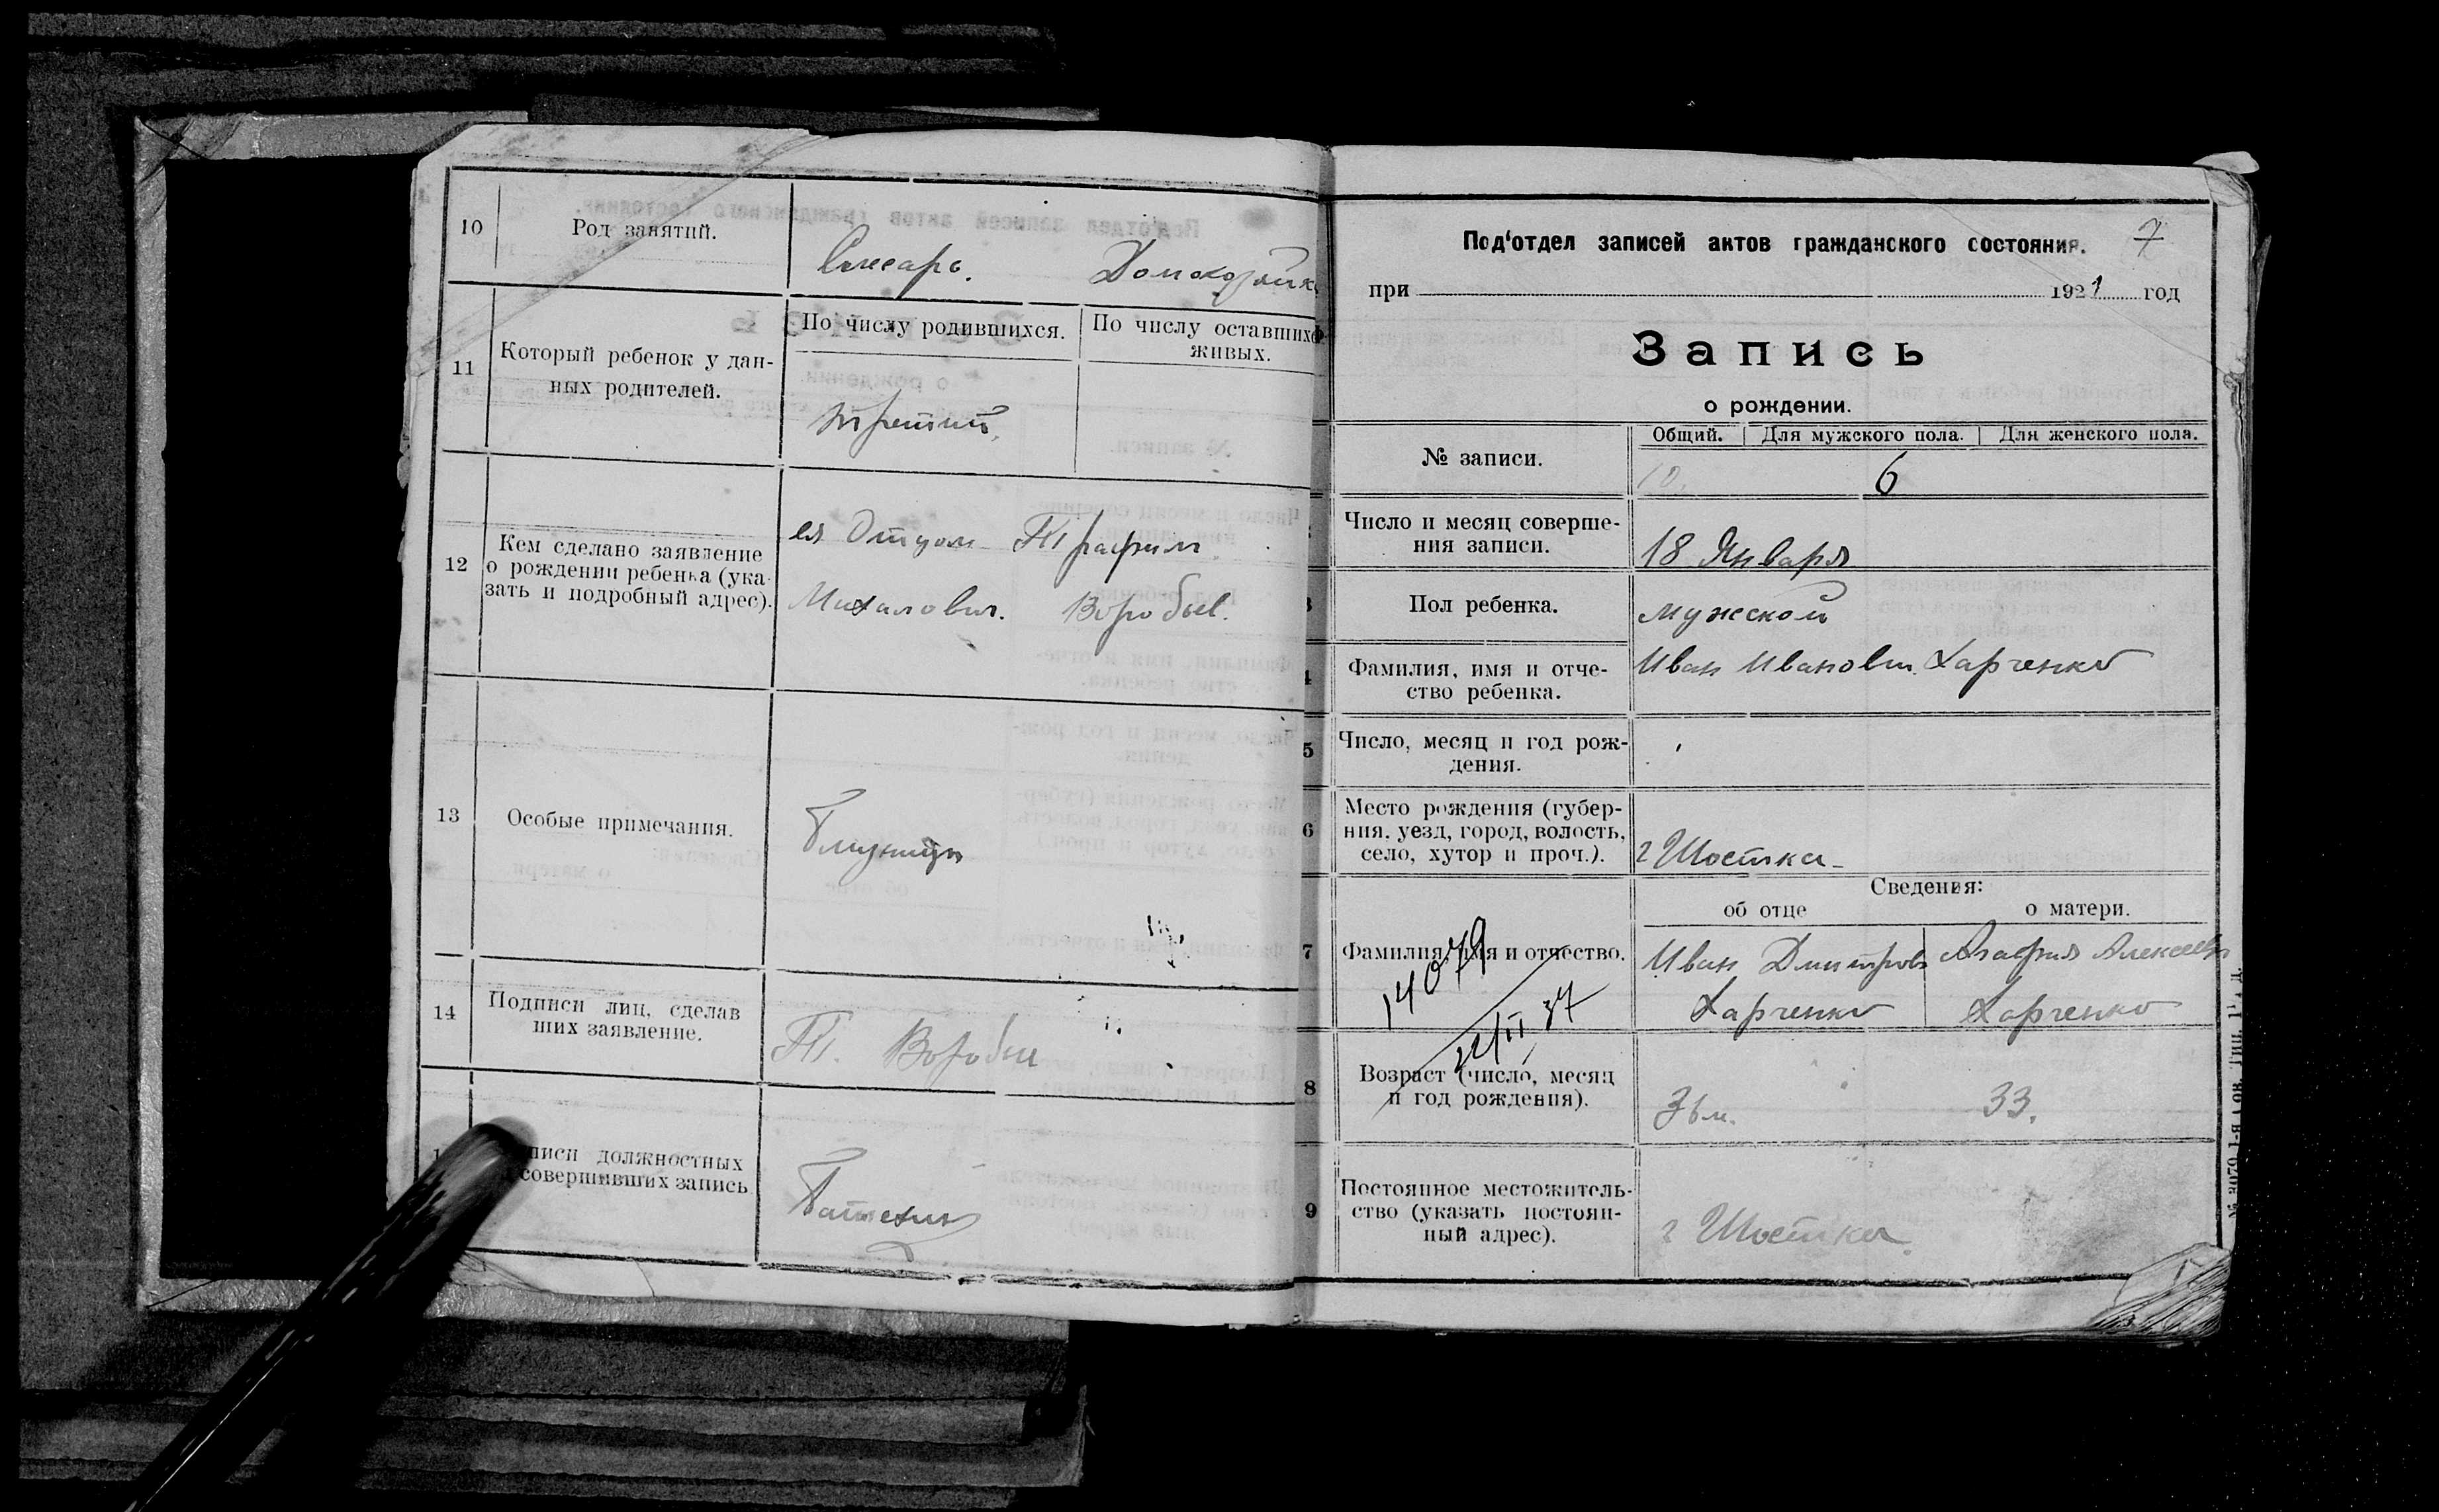 10
Род занятий.
Слесарь.
Домохозяйка
11
Который ребенок у дан-
ных родителей.
По числу родившихся.
По числу оставшихся
живых.
третий.
12
Кем сделано заявление
о рождении ребенка (ука-
зать и подробный адрес).
ея Отцом
Михалович. Воробьев.
13
Особые примечания.
14
Подписи лиц, сделав
ших заявление.
Воробьев
писи должностных
совершивших запись
Под‘отдел записей актов гражданского состояния.
7
при 1921 год
Запись
о рождении.
№ записи.
Общий.
Для мужского пола.
Для женского пола.
10.
6
Число и месяц соверше-
ния записи.
18 Января
Пол ребенка.
мужской
4
Фамилия, имя и отче-
ство ребенка.
Иван Иванович Харченко
5
Число, месяц и год рож-
дения.
6
Место рождения (губер-
ния, уезд, город, волость,
село, хутор и проч.).
г Шостка
Сведения:
об отце
о матери.
7
Фамилия, имя и отчество.
Иван Дмитров
Харченко
Агафия Алексеев
Харченко
14079
22/II 37
8
Возраст (число, месяц
и год рождения).
33.
9
Постоянное местожитель-
ство (указать постоян-
ный адрес).
г Шостка